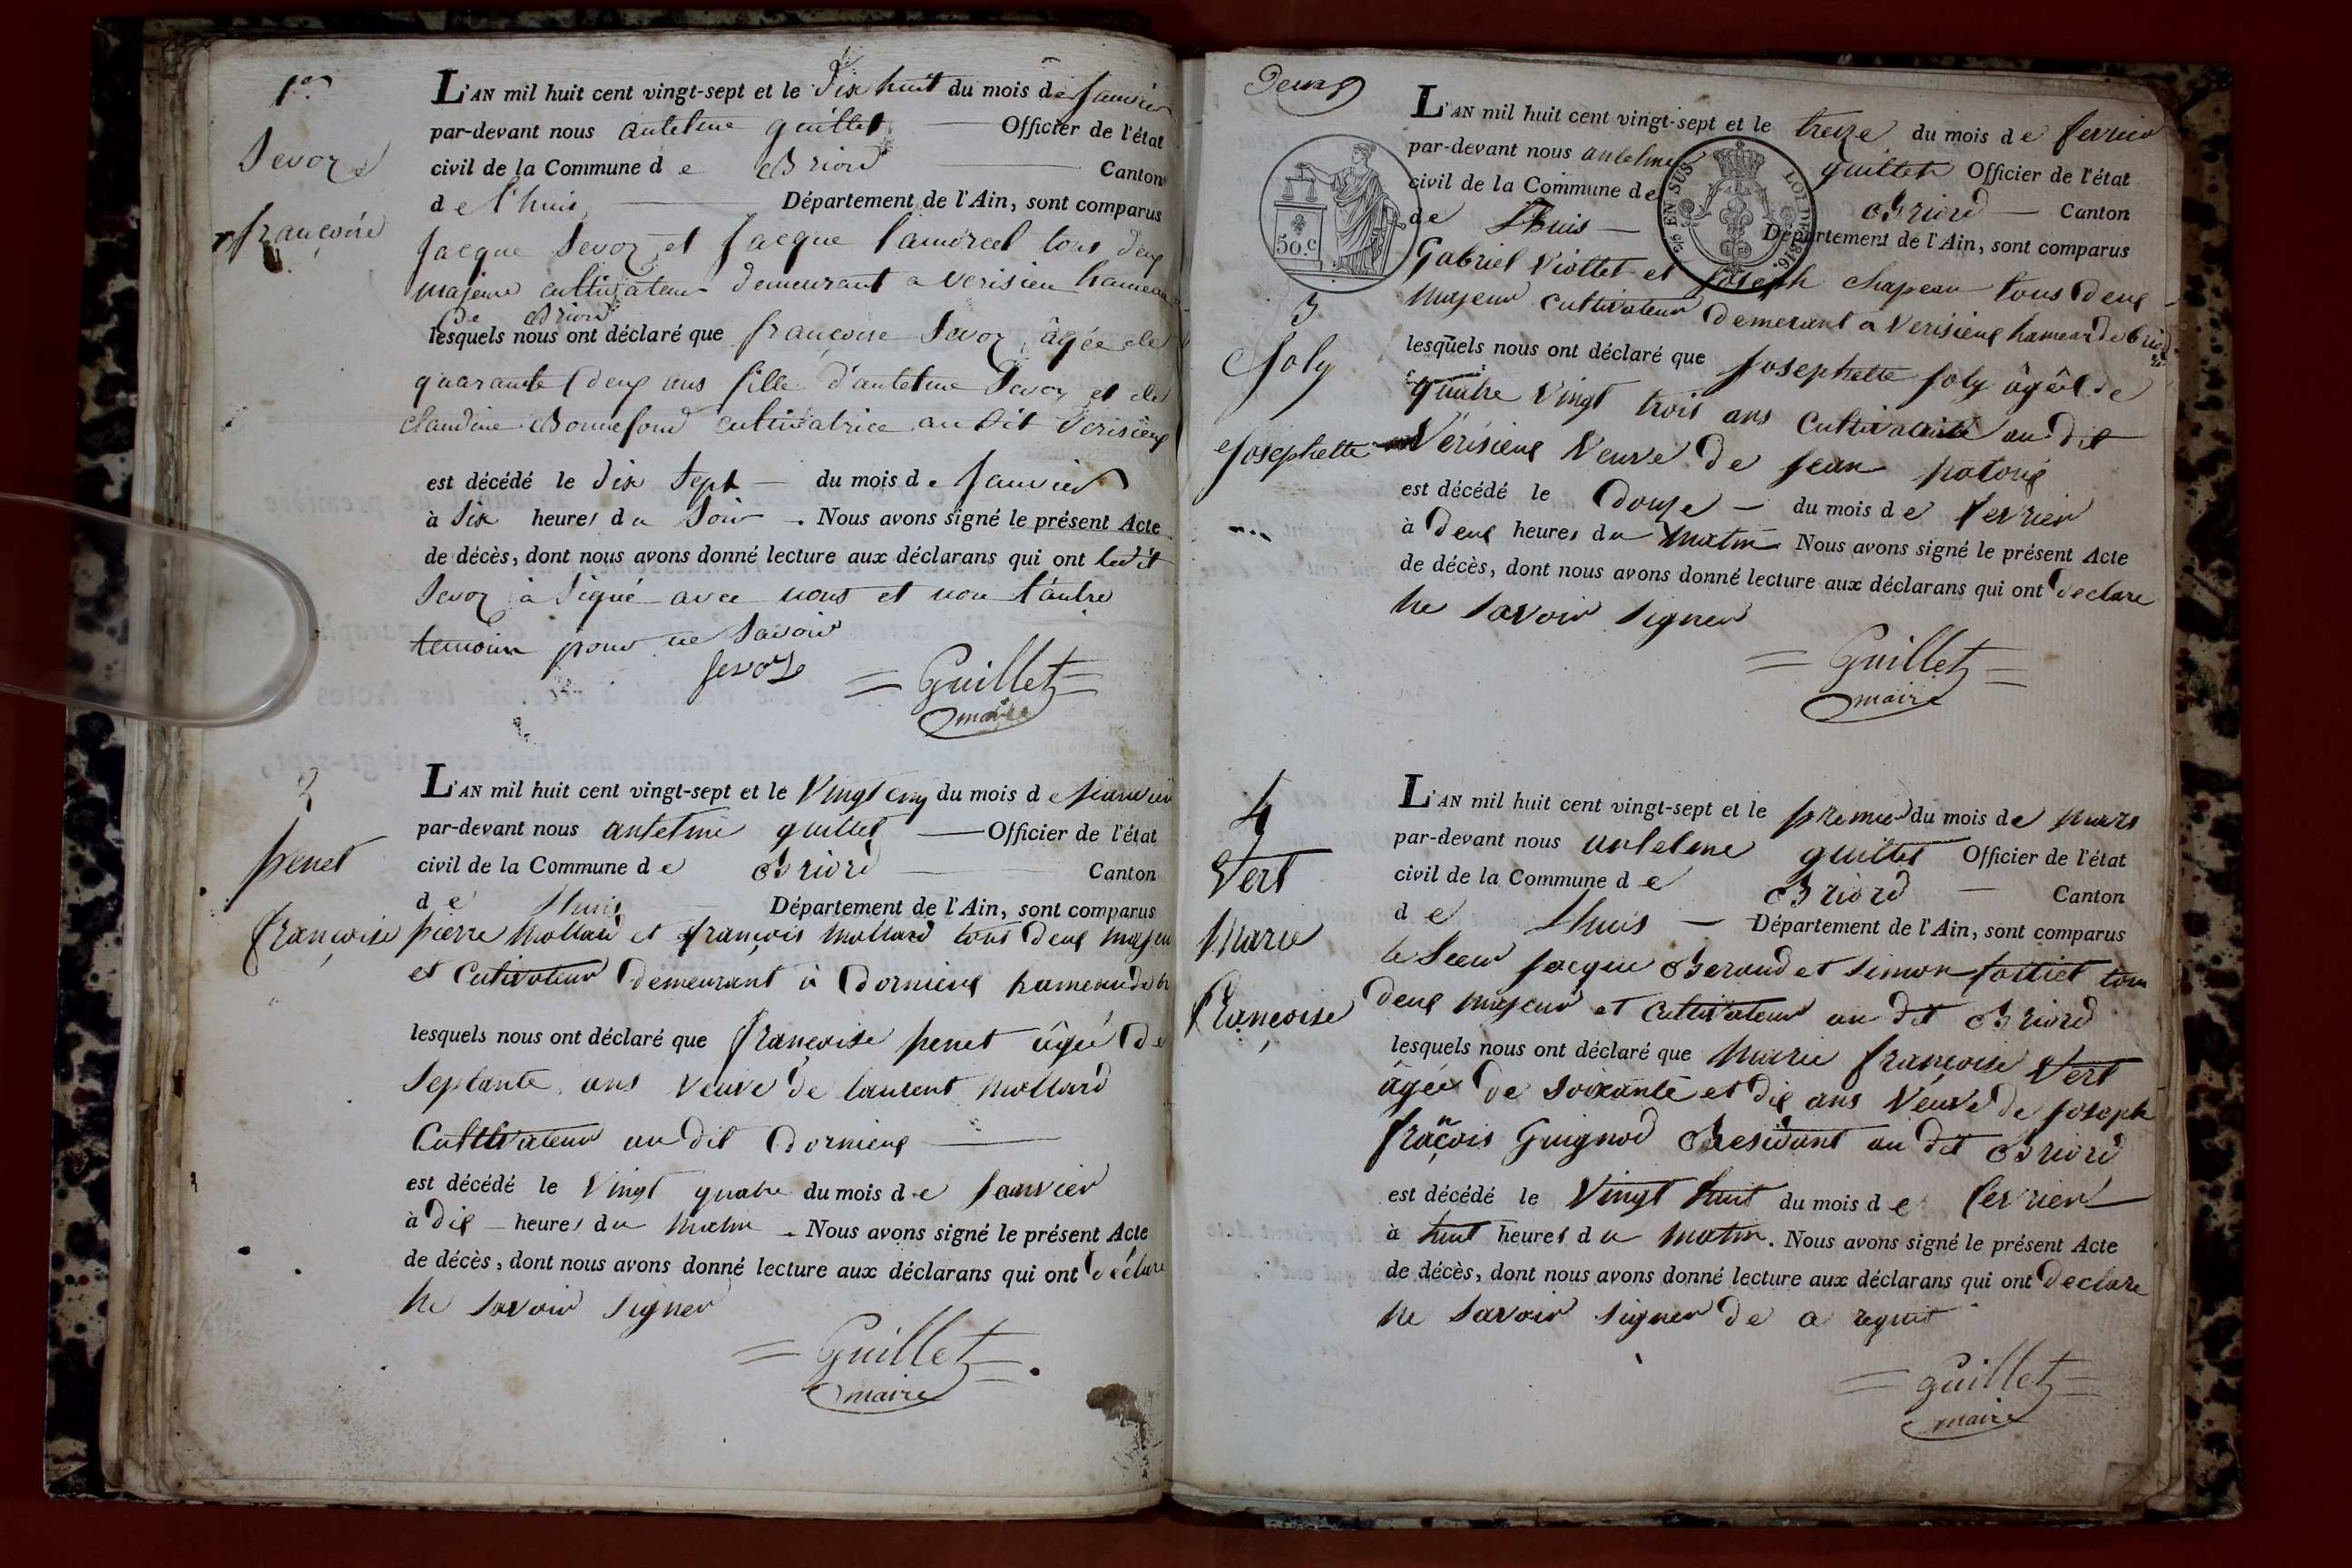 1er
Sevoz
françoise
L'AN mil huit cent vingt-sept et le dix huit du mois de janvier
par-devant nous antelme guillet Officier de l'état
civil de la Commune de Briord Canton
de l'huis Département de l'Ain, sont comparus
jacque Sevoz et jacque tous deux
majeur cultivateur demeurant a verisieu hameau
de Briord
lesquels nous ont déclaré que françoise Sevoz âgée de
quarante deux ans fille d'antelme Sevoz et de
claudine Bonnefond cultivatrice au dit Verisieux
est décédé le dix sept du mois de janvier
à Six heures du Soir. Nous avons signé le présent Acte
de décès, dont nous avons donné lecture aux déclarans qui ont ledit
Sevoz à Signé avec nous et non l'autre
temoin pour ne Savoir
Sevoz = Guillet =
maire
2
penet
françoise
L'AN mil huit cent vingt-sept et le vingt cinq du mois de janvier
par-devant nous antelme guillet Officier de l'état
civil de la Commune de Briord Canton
de Lhuis Département de l'Ain, sont comparus
pierre Mollard et françois Mollard tous deux majeur
et Cultivateur demeurant à Dornieux hameau de br
lesquels nous ont déclaré que françoise penet âgée de
Septante ans veuve de laurent Mollard
Cultivateur au dit Dornieux
est décédé le vingt quatre du mois de janvier
à dix heures du matin. Nous avons signé le présent Acte
de décès, dont nous avons donné lecture aux déclarans qui ont déclare
ne savoir signer
= Guillet =
maire
Deux
50.c
EN SUS LOI DE 1816.
3
Joly
Josephette
L'AN mil huit cent vingt-sept et le treize du mois de fevrier
par-devant nous antelme guillet Officier de l'état
civil de la Commune de Briord Canton
de Lhuis Département de l'Ain, sont comparus
Gabriel Viollet et Joseph chapeau tous deux
majeur cultivateur demerant a Verisieux hameau de briord
lesquels nous ont déclaré que Josephette joly âgée de
quatre vingt trois ans Cultivatrice au dit
Verisieux Veuve de jean
est décédé le Douze du mois de fevrier
à deux heures du matin Nous avons signé le présent Acte
de décès, dont nous avons donné lecture aux déclarans qui ont declare
ne savoir signer
= Guillet =
maire
4
Vert
Marie
françoise
L'AN mil huit cent vingt-sept et le premier du mois de mars
par-devant nous antelme guillet Officier de l'état
civil de la Commune de Briord Canton
de Lhuis Département de l'Ain, sont comparus
le Sieur jacque Beraud et Simon tous
deux majeur et cultivateur au dit Briord
lesquels nous ont déclaré que Marie françoise Vert
âgée de soixante et dix ans Veuve de joseph
françois Guignod Residant au dit Briord
est décédé le vingt huit du mois de fevrier
à huit heures du matin. Nous avons signé le présent Acte
de décès, dont nous avons donné lecture aux déclarans qui ont declare
ne savoir signer de a requit
= guillet =
maire